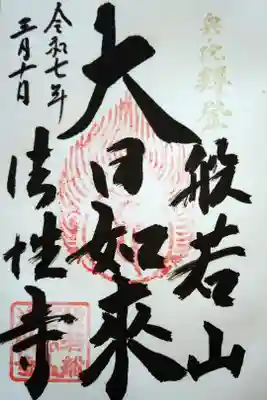 奥陀禅登
般若山
大日如来
法性寺
令和七年
三月十日